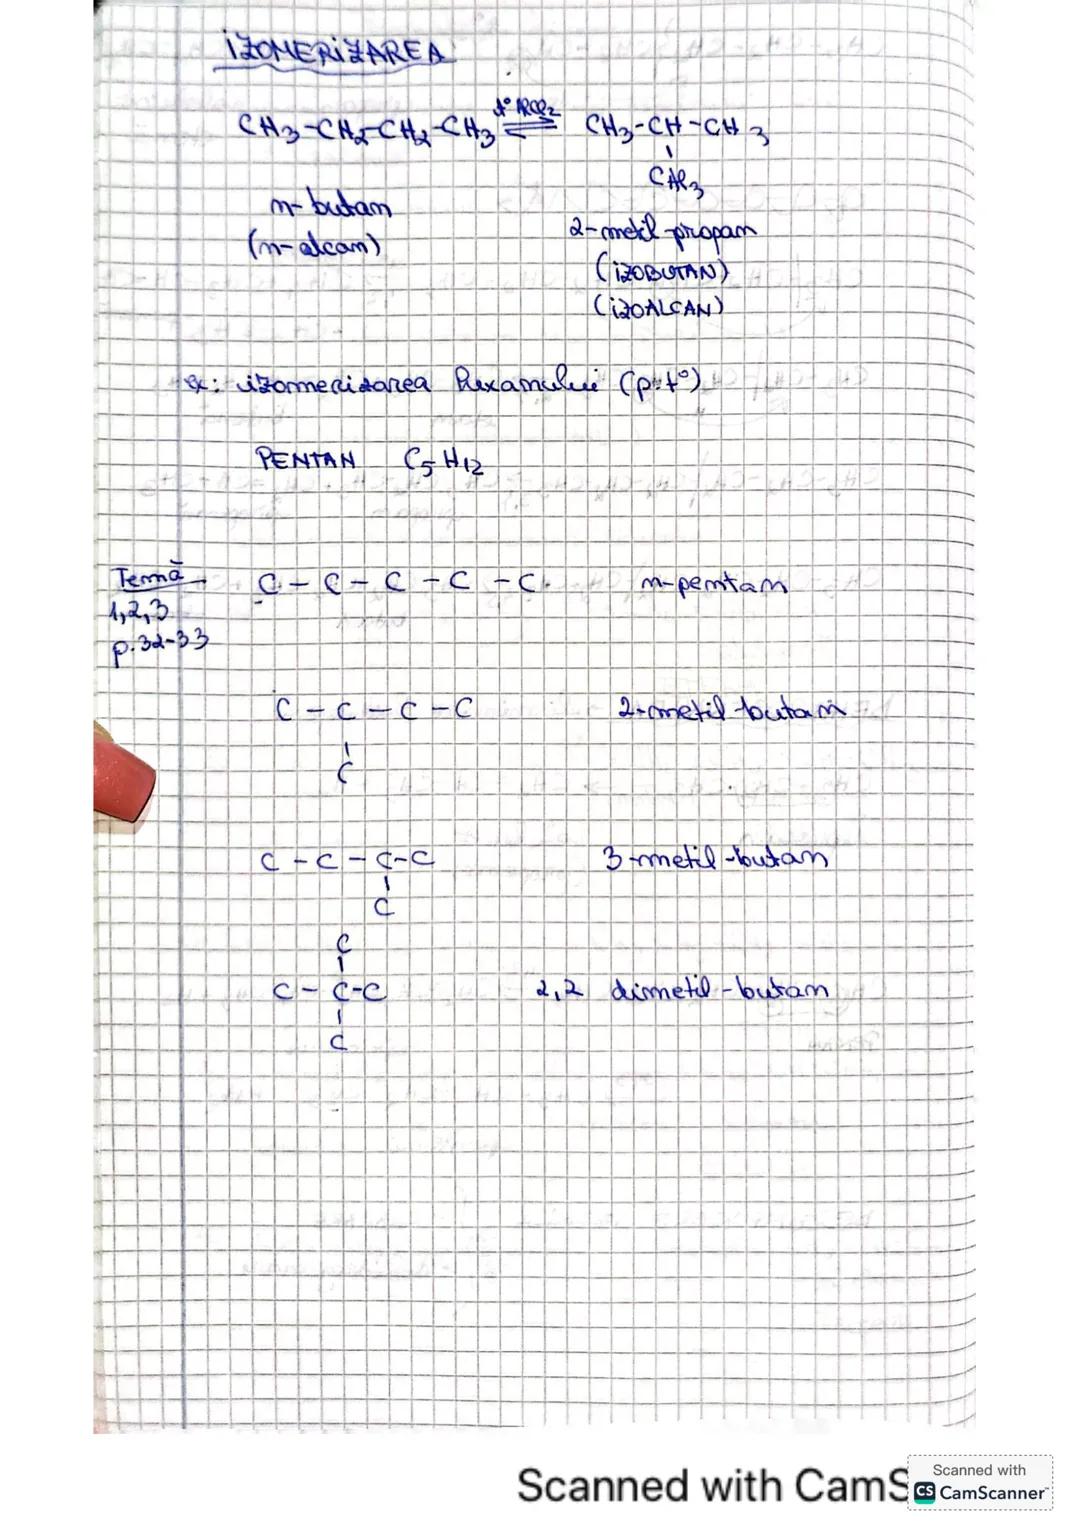 IZOMERIZAREA
CH3-CH2-CH2-CH3 ⇌ CH3-CH-CH3
t° AlCl2
CH3
n-butan
2-metil-propan
(n-alcan)
(IZOBUTAN)
(IZOALCAN)
ex: izomerizarea hexanului (p.t°)
PENTAN C5H12
Temă
1,2,3
p.32-33
C - C - C - C - C n-pentan
C - C - C - C 2-metil-butan
C
C - C - C - C 3-metil-butan
C
C
C - C - C 2,2 dimetil-butan
C
Scanned with CamS
Scanned with
CS CamScanner